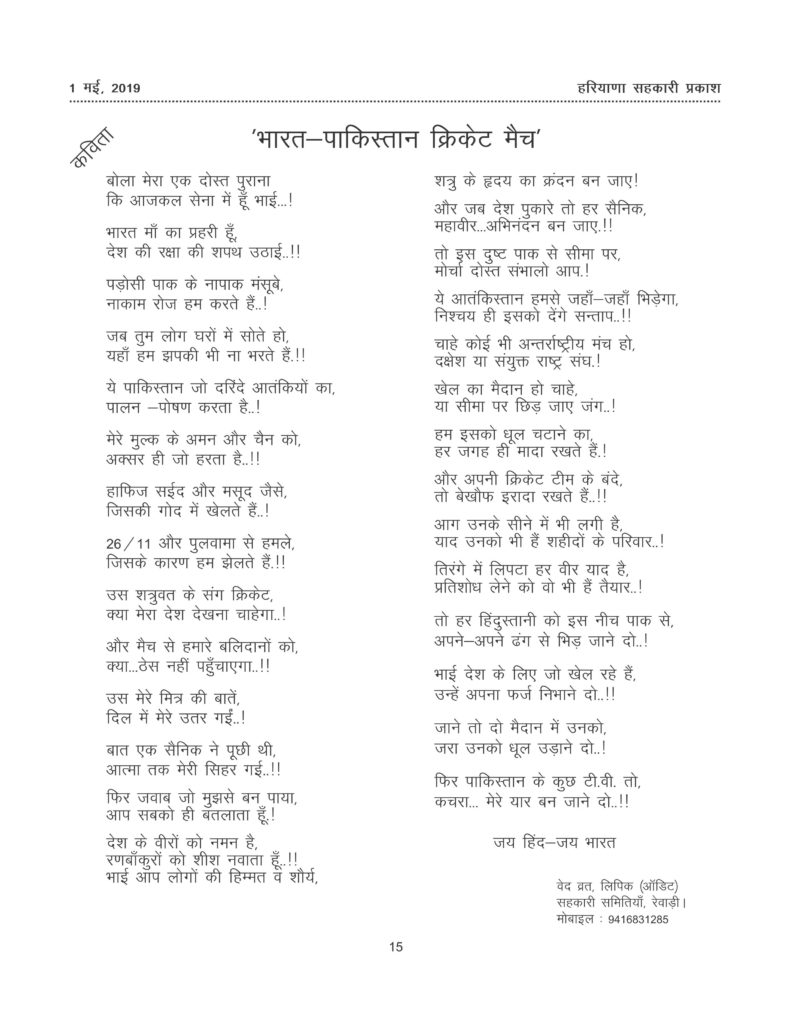 1 मई, 2019
हरियाणा सहकारी प्रकाश
कविता
'भारत–पाकिस्तान क्रिकेट मैच'
बोला मेरा एक दोस्त पुराना
कि आजकल सेना में हूँ भाई...!
भारत माँ का प्रहरी हूँ,
देश की रक्षा की शपथ उठाई..!!
पड़ोसी पाक के नापाक मंसूबे,
नाकाम रोज हम करते हैं..!
जब तुम लोग घरों में सोते हो,
यहाँ हम झपकी भी ना भरते हैं.!!
ये पाकिस्तान जो दरिंदे आतंकियों का,
पालन –पोषण करता है..!
मेरे मुल्क के अमन और चैन को,
अक्सर ही जो हरता है..!!
हाफिज सईद और मसूद जैसे,
जिसकी गोद में खेलते हैं..!
26/11 और पुलवामा से हमले,
जिसके कारण हम झेलते हैं.!!
उस शत्रुवत के संग क्रिकेट,
क्या मेरा देश देखना चाहेगा..!
और मैच से हमारे बलिदानों को,
क्या...ठेस नहीं पहुँचाएगा..!!
उस मेरे मित्र की बातें,
दिल में मेरे उतर गईं..!
बात एक सैनिक ने पूछी थी,
आत्मा तक मेरी सिहर गई..!!
फिर जवाब जो मुझसे बन पाया,
आप सबको ही बतलाता हूँ.!
देश के वीरों को नमन है,
रणबाँकुरों को शीश नवाता हूँ..!!
भाई आप लोगों की हिम्मत व शौर्य,
शत्रु के हृदय का क्रंदन बन जाए!
और जब देश पुकारे तो हर सैनिक,
महावीर...अभिनंदन बन जाए.!!
तो इस दुष्ट पाक से सीमा पर,
मोर्चा दोस्त संभालो आप.!
ये आतंकिस्तान हमसे जहाँ–जहाँ भिड़ेगा,
निश्चय ही इसको देंगे सन्ताप..!!
चाहे कोई भी अन्तर्राष्ट्रीय मंच हो,
दक्षेश या संयुक्त राष्ट्र संघ.!
खेल का मैदान हो चाहे,
या सीमा पर छिड़ जाए जंग..!
हम इसको धूल चटाने का,
हर जगह ही मादा रखते हैं.!
और अपनी क्रिकेट टीम के बंदे,
तो बेखौफ इरादा रखते हैं..!!
आग उनके सीने में भी लगी है,
याद उनको भी हैं शहीदों के परिवार..!
तिरंगे में लिपटा हर वीर याद है,
प्रतिशोध लेने को वो भी हैं तैयार..!
तो हर हिंदुस्तानी को इस नीच पाक से,
अपने–अपने ढंग से भिड़ जाने दो..!
भाई देश के लिए जो खेल रहे हैं,
उन्हें अपना फर्ज निभाने दो..!!
जाने तो दो मैदान में उनको,
जरा उनको धूल उड़ाने दो..!
फिर पाकिस्तान के कुछ टी.वी. तो,
कचरा... मेरे यार बन जाने दो..!!
जय हिंद–जय भारत
वेद व्रत, लिपिक (ऑडिट)
सहकारी समितियाँ, रेवाड़ी।
मोबाइल : 9416831285
15